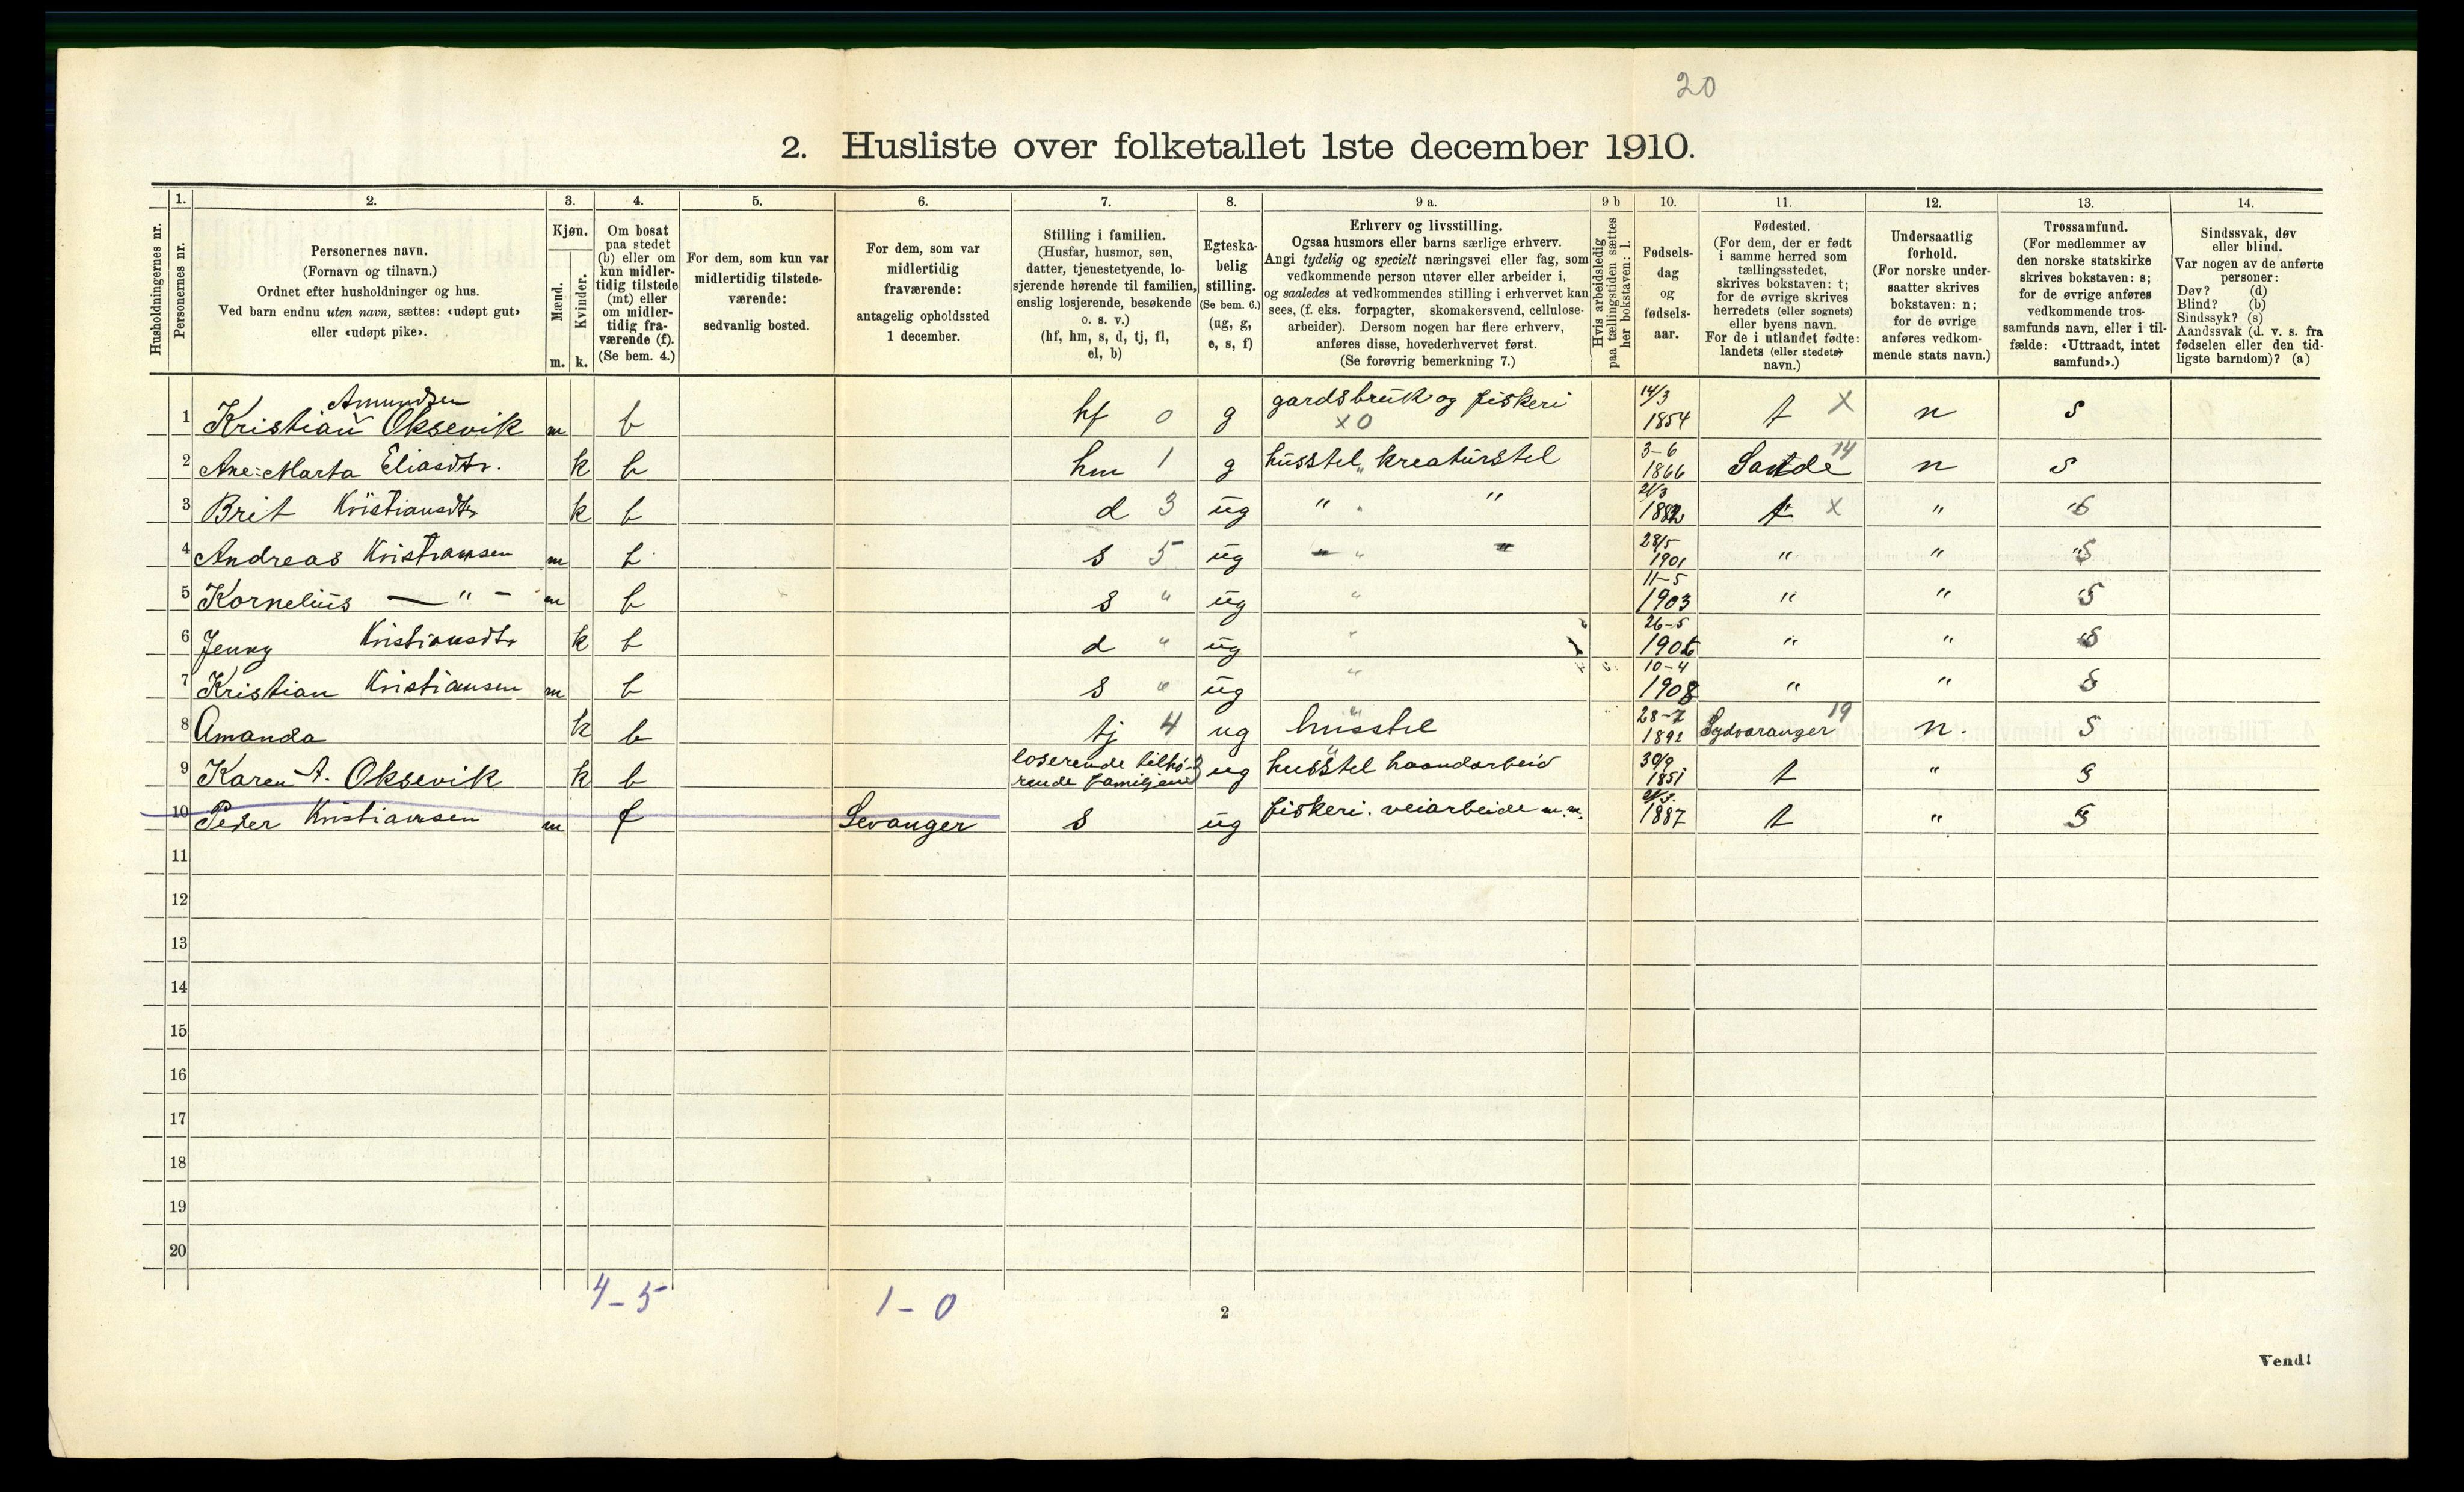 20
2. Husliste over folketallet 1ste december 1910.
Husholdningernes nr.
1. Personernes nr.
2. Personernes navn.
(Fornavn og tilnavn.)
Ordnet efter husholdninger og hus.
Ved barn endnu uten navn, sættes: «udøpt gut»
eller «udøpt pike».
3. Kjøn.
Mænd. Kvinder.
m. k.
4. Om bosat
paa stedet
(b) eller om
kun midler-
tidig tilstede
(mt) eller
om midler-
tidig fra-
værende (f).
(Se bem. 4.)
5. For dem, som kun var
midlertidig tilstede-
værende:
sedvanlig bosted.
6. For dem, som var
midlertidig
fraværende:
antagelig opholdssted
1 december.
7. Stilling i familien.
(Husfar, husmor, søn,
datter, tjenestetyende, lo-
sjerende hørende til familien,
enslig losjerende, besøkende
o. s. v.)
(hf, hm, s, d, tj, fl,
el, b)
8. Egteska-
belig
stilling.
(Se bem. 6.)
(ug, g,
e, s, f)
9 a. Erhverv og livsstilling.
Ogsaa husmors eller barns særlige erhverv.
Angi tydelig og specielt næringsvei eller fag, som
vedkommende person utøver eller arbeider i,
og saaledes at vedkommendes stilling i erhvervet kan
sees, (f. eks. forpagter, skomakersvend, cellulose-
arbeider). Dersom nogen har flere erhverv,
anføres disse, hovederhvervet først.
(Se forøvrig bemerkning 7.)
9 b Hvis arbeidsledig
paa tællingstiden sættes
her bokstaven: l.
10. Fødsels-
dag
og
fødsels-
aar.
11. Fødested.
(For dem, der er født
i samme herred som
tællingsstedet,
skrives bokstaven: t;
for de øvrige skrives
herredets (eller sognets)
eller byens navn.
For de i utlandet fødte:
landets (eller stedets)
navn.)
12. Undersaatlig
forhold.
(For norske under-
saatter skrives
bokstaven: n;
for de øvrige
anføres vedkom-
mende stats navn.)
13. Trossamfund.
(For medlemmer av
den norske statskirke
skrives bokstaven: s;
for de øvrige anføres
vedkommende tros-
samfunds navn, eller i til-
fælde: «Uttraadt, intet
samfund».)
14. Sindssvak, døv
eller blind.
Var nogen av de anførte
personer:
Døv? (d)
Blind? (b)
Sindssyk? (s)
Aandssvak (d. v. s. fra
fødselen eller den tid-
ligste barndom)? (a)
Amundsen
1 Kristian Oksevik m b hf 0 g gardsbruk og fiskeri x0 14/3 1854 t X n s
2 Ane-Marta Eliasdtr. k b hm 1 g husstel " kreaturstel 3-6 1866 Sande 14 n s
3 Brit Kristiansdtr k b d 3 ug " " " 21/3 t x " s
4 Andreas Kristiansen m b s 5 ug " " " 28/5 1901 " " s
5 Kornelius — " — m b s " ug " 11-5 1903 " " s
6 Jenny Kristiansdtr k b d " ug " 26-5 " " s
7 Kristian Kristiansen m b s " ug " 10-4 1908 " " s
8 Amanda k b tj 4 ug husstel 28-7 1892 Sydvaranger 19 n. s
9 Karen A. Oksevik k b loserende tilhø-
rende familjene 3 ug husstel haandarbeid 30/9 1851 t " s
10 Peder Kristiansen m f Levanger s ug fiskeri. veiarbeide m.m. 1887 t " s
11
12
13
14
15
16
17
18
19
20
4-5 1-0
2
Vend!